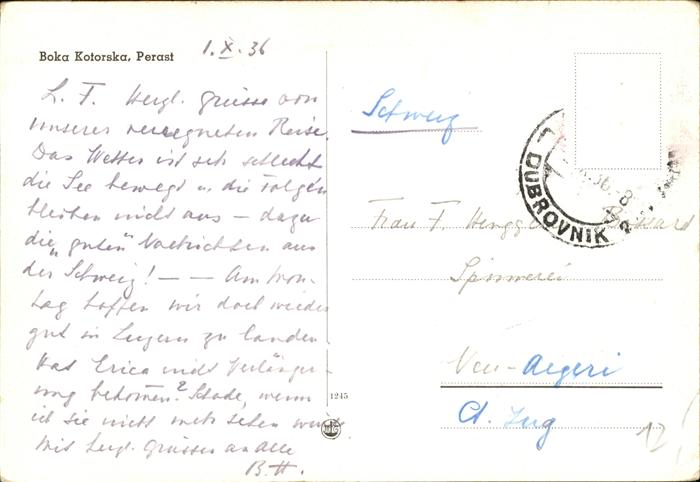 Boka Kotorska, Perast
1.X.36
L. F. Hergl. Grüsse von
unserer verregneten Reise.
Das Wetter ist sehr schlecht
die See bewegt u. die Folgen
bleiben nicht aus – dazu
die "guten" Nachrichten aus
der Schweiz! – – Am Mon-
tag hoffen wir doch wieder
gut in Luzern zu landen.
Hat Erica nicht Verlänger-
ung bekommen? Schade, wenn
ich sie nicht mehr sehen
Mit hergl. Grüssen an alle
B.H.
1245
Schweiz
DUBROVNIK
Frau F. Hengg
Spinnerei
Neu-Aegeri
Ct. Zug
12